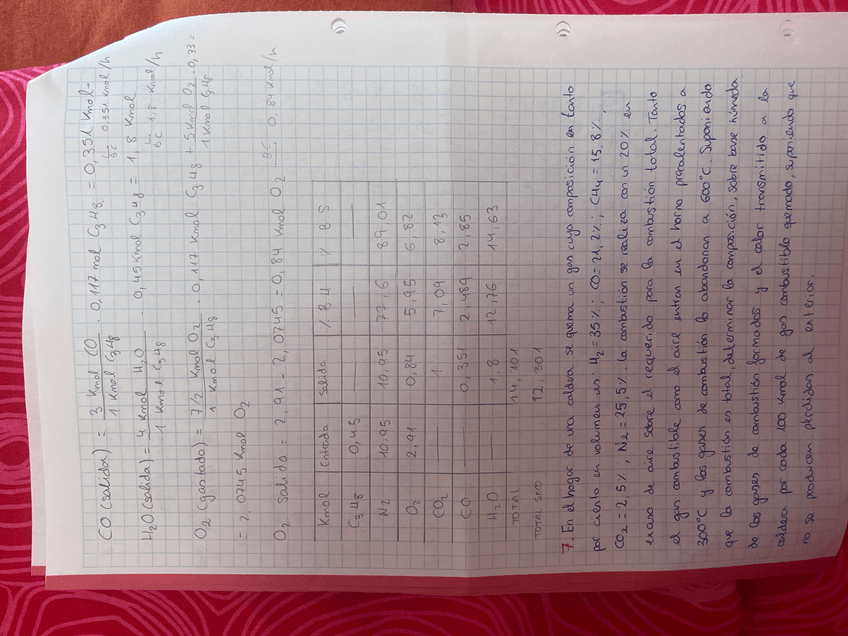 CO (salida) = 3 Kmol CO / 1 Kmol C3H8 · 0,117 mol C3H8 = 0,351 Kmol -
BC → 0,351 Kmol/h
H2O (salida) = 4 Kmol H2O / 1 Kmol C3H8 · 0,45 Kmol C3H8 = 1,8 Kmol
BC → 1,8 Kmol/h
O2 (gastado) = 7/2 Kmol O2 / 1 Kmol C3H8 · 0,117 Kmol C3H8 + 5 Kmol O2 / 1 Kmol C3H8 · 0,33 =
= 2,0745 Kmol O2
O2 salida = 2,91 - 2,0745 = 0,84 Kmol O2 BC → 0,84 Kmol/h
Kmol Entrada Salida % BH % BS
C3H8 0,45 — — —
N2 10,95 10,95 77,6 89,01
O2 2,91 0,84 5,95 6,82
CO2 — 1 7,09 8,13
CO — 0,351 2,489 2,85
H2O — 1,8 12,76 14,63
TOTAL 14,101
TOTAL SECO 12,301
7. En el hogar de una caldera se quema un gas cuya composición en tanto
por ciento en volumen es: H2 = 35%; CO = 21,2%; CH4 = 15,8%,
CO2 = 2,5%, N2 = 25,5%. La combustión se realiza con un 20% en
exceso de aire sobre el requerido para la combustión total. Tanto
el gas combustible como el aire entran en el horno precalentados a
300°C y los gases de combustión la abandonan a 600°C. Suponiendo
que la combustión es total, determinar la composición, sobre base húmeda
de los gases de combustión formados y el calor transmitido a la
caldera por cada 100 Kmol de gas combustible quemado, suponiendo que
no se producen pérdidas al exterior.